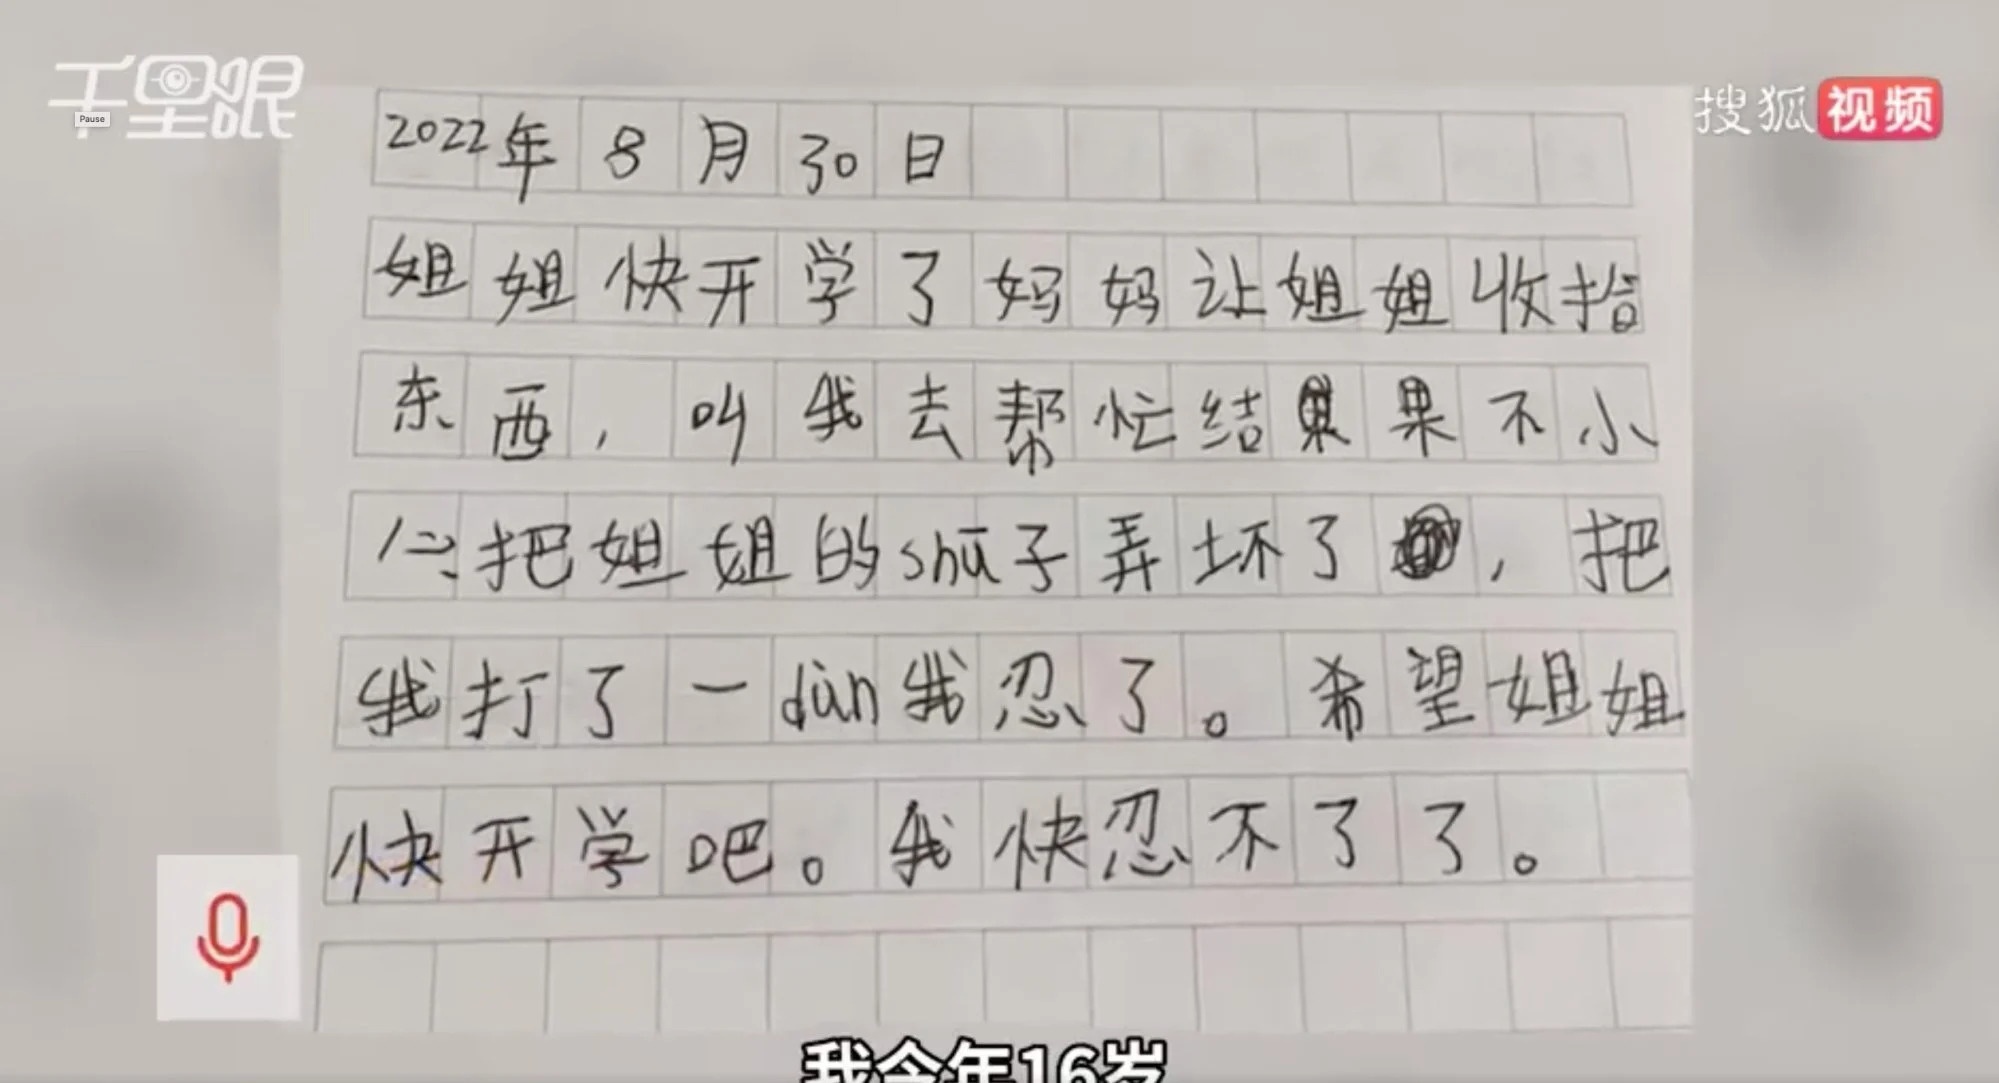 千里眼
Pause
搜狐视频
2022年8月30日
姐姐快开学了妈妈让姐姐收拾
东西，叫我去帮忙结果不小
心把姐姐的shū子弄坏了，把
我打了一dùn我忍了。希望姐姐
快开学吧。我快忍不了了。
我今年16岁